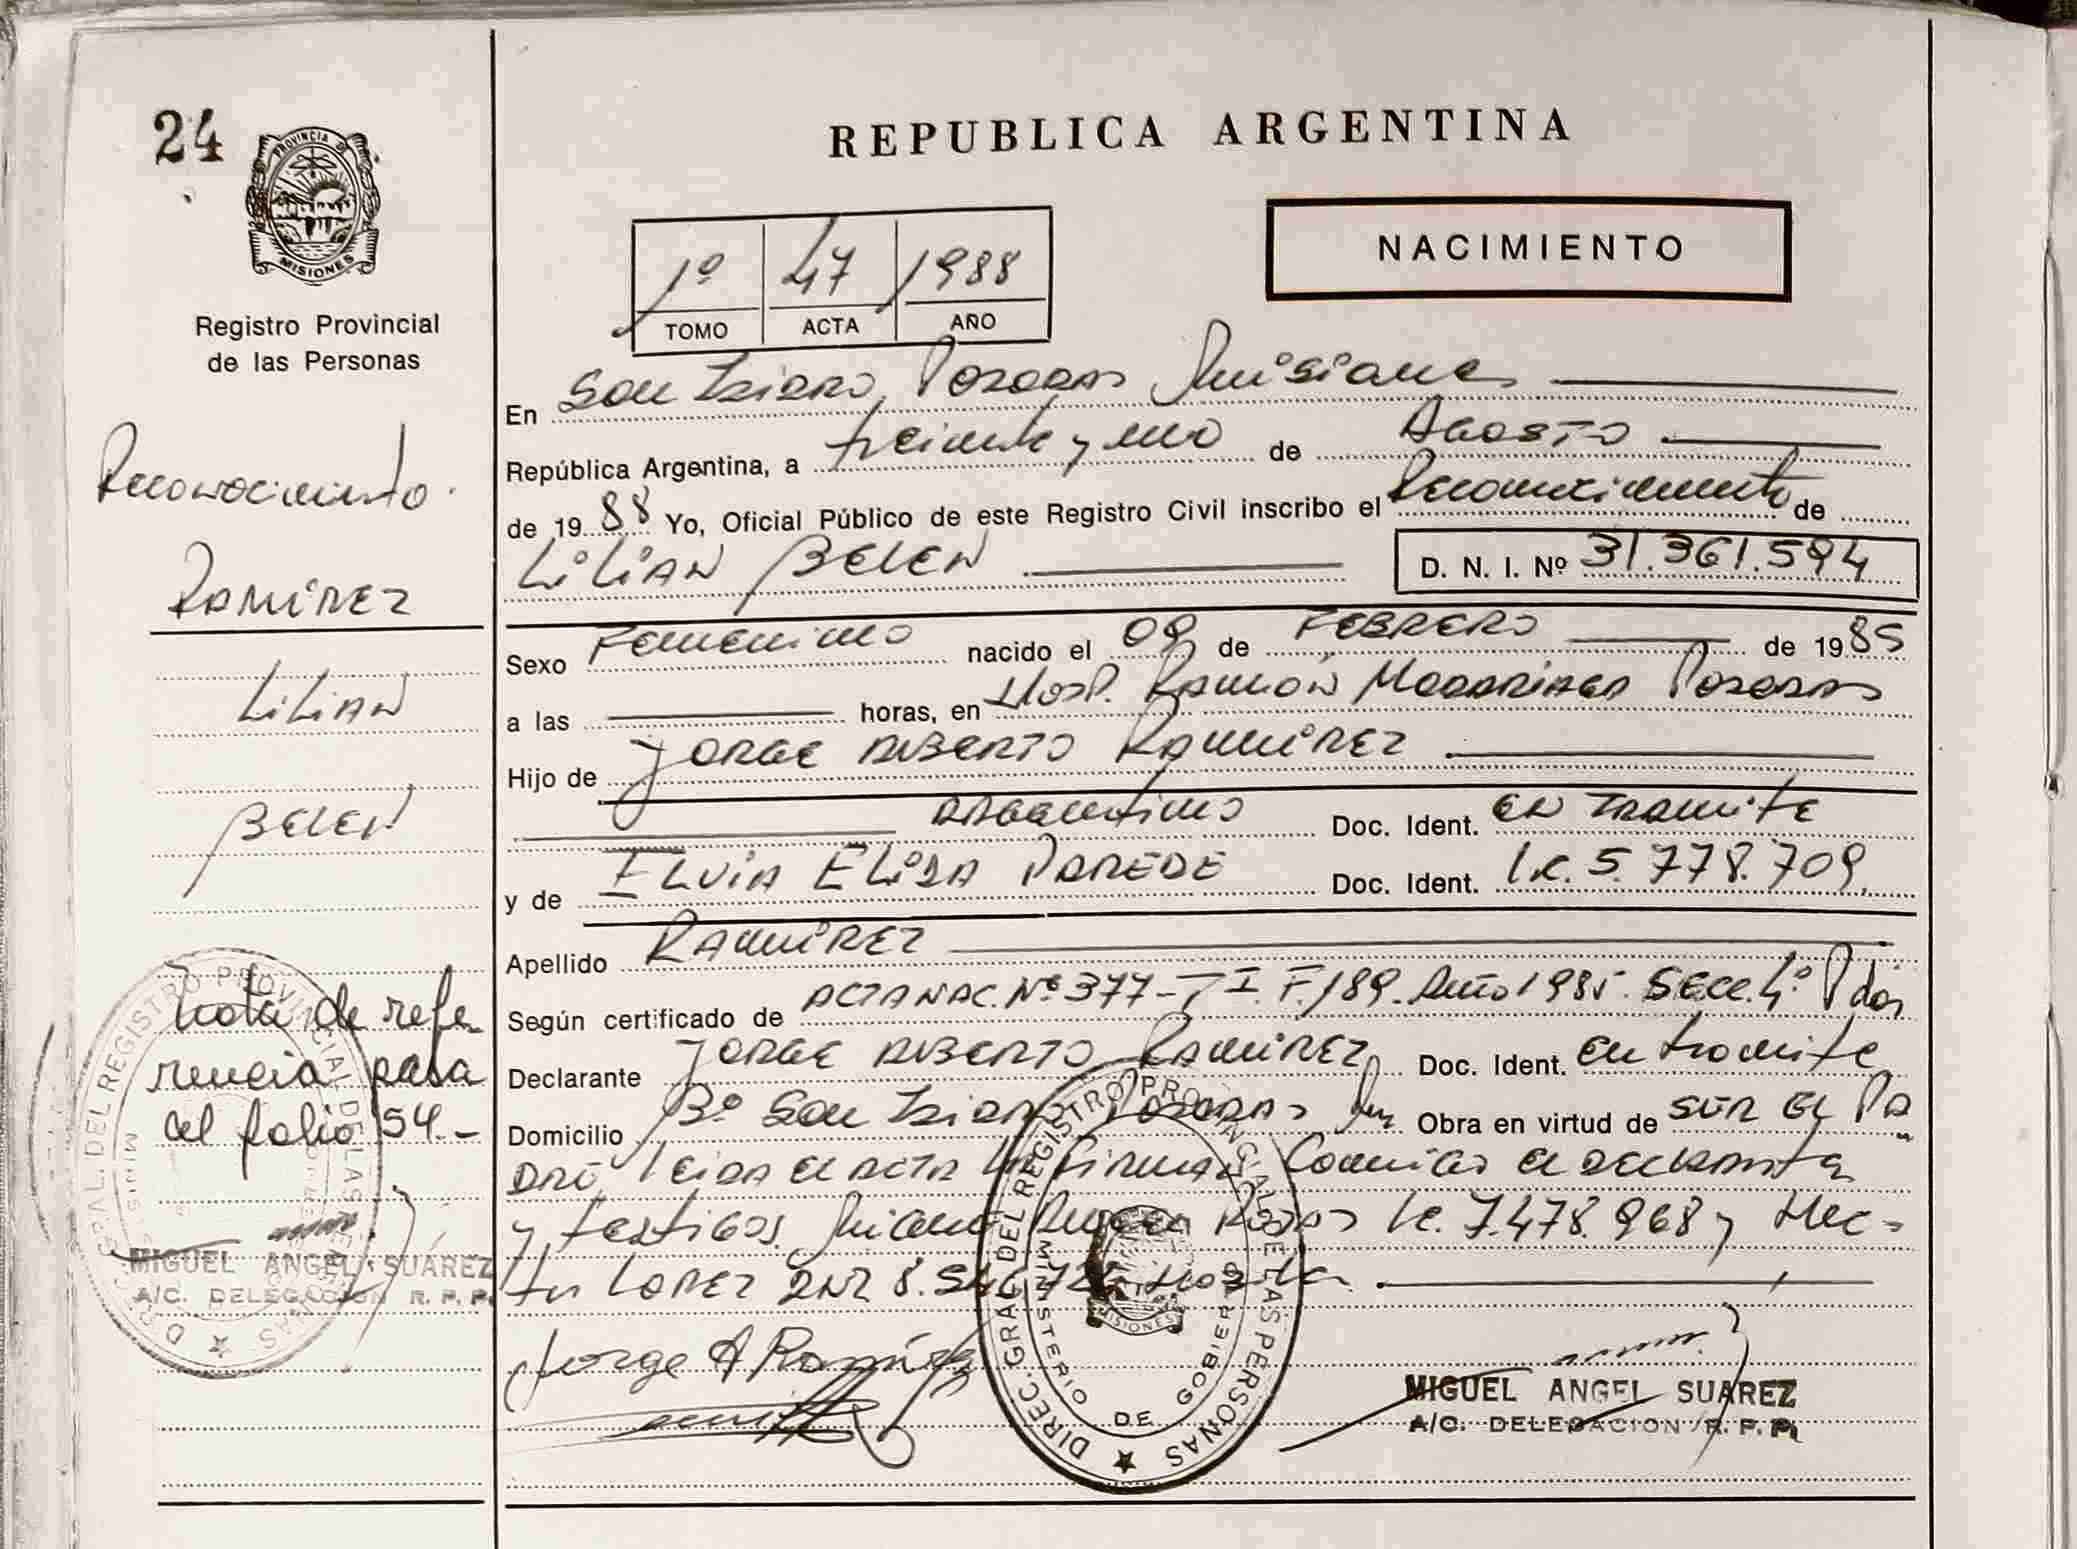 24
PROVINCIA DE
MISIONES
Registro Provincial
de las Personas
Reconocimiento.
RAMIREZ
LILIAN
BELEN
Nota de refe-
rencia pasa
al folio 54.-
MIGUEL ANGEL SUAREZ
A/C. DELEGACION R. P. P.
REPUBLICA ARGENTINA
NACIMIENTO
1º 47 1988
TOMO ACTA AÑO
En San Isidro, Posadas Misiones
República Argentina, a treinta y uno de Agosto
de 1988 Yo, Oficial Público de este Registro Civil inscribo el Reconocimiento de
LILIAN BELEN D. N. I. Nº 31.361.594
Sexo Femenino nacido el 09 de FEBRERO de 1985
a las horas, en Hosp. Ramón Madariaga Posadas
Hijo de JORGE ALBERTO RAMIREZ
Argentino Doc. Ident. en tramite
y de ELVIA ELISA PAREDE Doc. Ident. l.c. 5.778.709
Apellido RAMIREZ
Según certificado de ACTA NAC. Nº 377-T I. F.189. Año 1985. Secc. 4º Pdas
Declarante JORGE ALBERTO RAMIREZ Doc. Ident. en tramite
Domicilio Bº San Isidro Posadas Mnes Obra en virtud de SER EL PA
DRE leida el acta la firman conmigo el declarante
y testigos. Rojas le. 7.478.968 y Hec-
tor LOPEZ DNI 8.
Jorge A Ramírez
DIREC. GRAL. DEL REGISTRO PROVINCIAL DE LAS PERSONAS
MINISTERIO DE GOBIERNO
MISIONES
MIGUEL ANGEL SUAREZ
A/C. DELEGACION R. P. P.